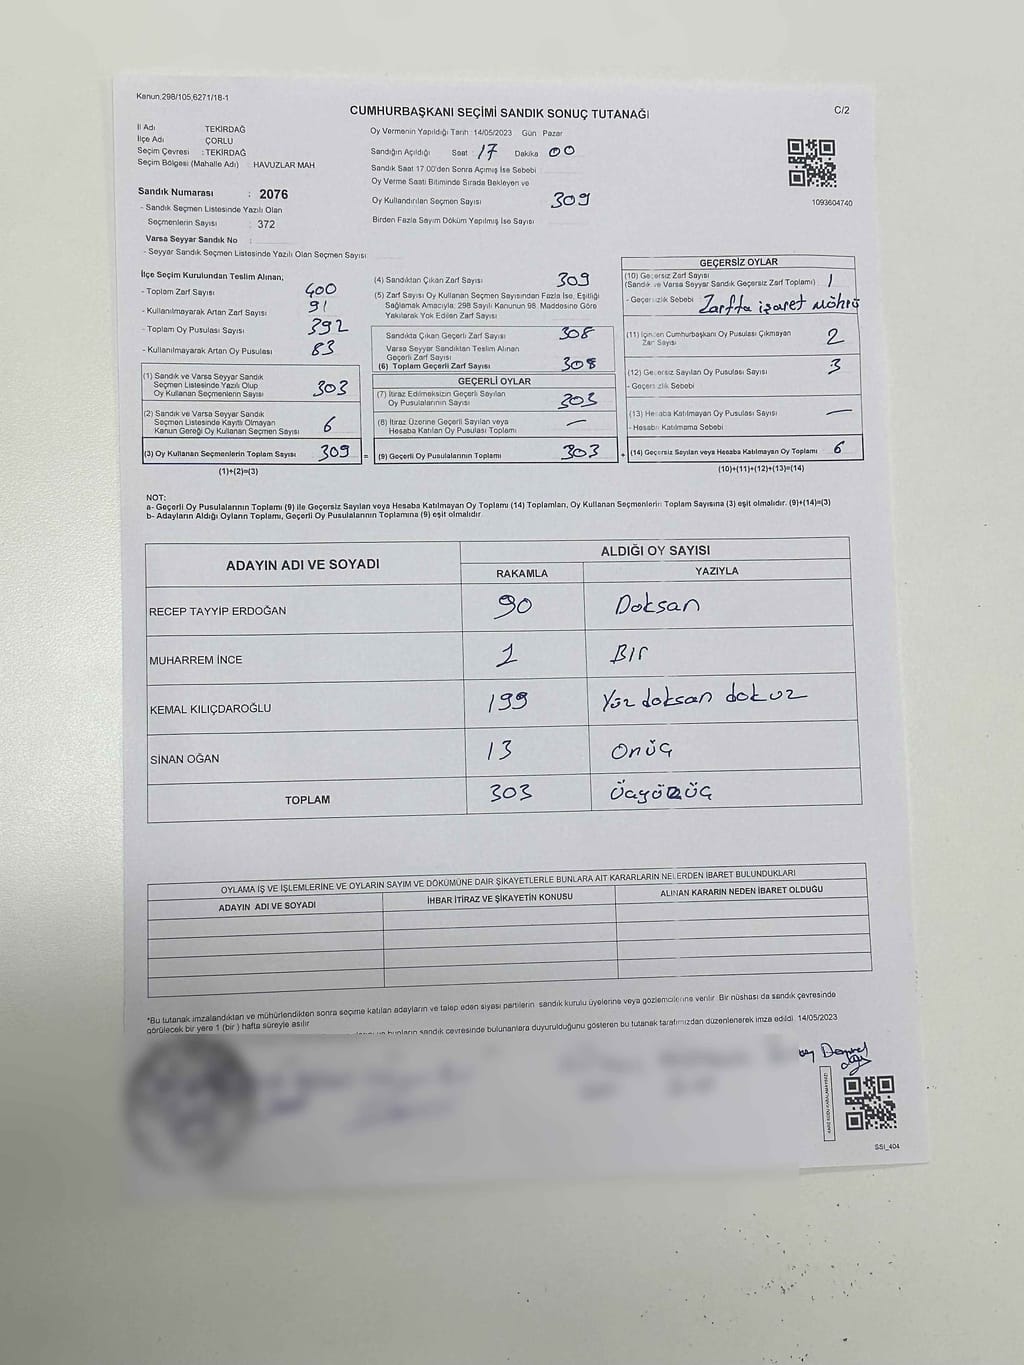 Kanun.298/105,6271/18-1
CUMHURBAŞKANI SEÇİMİ SANDIK SONUÇ TUTANAĞI
C/2
İl Adı TEKİRDAĞ
İlçe Adı ÇORLU
Seçim Çevresi : TEKİRDAĞ
Seçim Bölgesi (Mahalle Adı) : HAVUZLAR MAH
Sandık Numarası : 2076
- Sandık Seçmen Listesinde Yazılı Olan
Seçmenlerin Sayısı : 372
Varsa Seyyar Sandık No :
- Seyyar Sandık Seçmen Listesinde Yazılı Olan Seçmen Sayısı
Oy Vermenin Yapıldığı Tarih : 14/05/2023 Gün Pazar
Sandığın Açıldığı Saat : 17 Dakika 00
Sandık Saat 17.00'den Sonra Açımış İse Sebebi
Oy Verme Saati Bitiminde Sırada Bekleyen ve
Oy Kullandırılan Seçmen Sayısı 309
Birden Fazla Sayım Döküm Yapılmış İse Sayısı
1093604740
İlçe Seçim Kurulundan Teslim Alınan;
- Toplam Zarf Sayısı 400
- Kullanılmayarak Artan Zarf Sayısı 91
- Toplam Oy Pusulası Sayısı 392
- Kullanılmayarak Artan Oy Pusulası 83
(1) Sandık ve Varsa Seyyar Sandık
Seçmen Listesinde Yazılı Olup
Oy Kullanan Seçmenlerin Sayısı 303
(2) Sandık ve Varsa Seyyar Sandık
Seçmen Listesinde Kayıtlı Olmayan
Kanun Gereği Oy Kullanan Seçmen Sayısı 6
(3) Oy Kullanan Seçmenlerin Toplam Sayısı 309
(1)+(2)=(3)
(4) Sandıktan Çıkan Zarf Sayısı 309
(5) Zarf Sayısı Oy Kullanan Seçmen Sayısından Fazla İse, Eşitliği
Sağlamak Amacıyla, 298 Sayılı Kanunun 98. Maddesine Göre
Yakılarak Yok Edilen Zarf Sayısı
Sandıkta Çıkan Geçerli Zarf Sayısı 308
Varsa Seyyar Sandıktan Teslim Alınan
Geçerli Zarf Sayısı
(6) Toplam Geçerli Zarf Sayısı 308
GEÇERLİ OYLAR
(7) İtiraz Edilmeksizin Geçerli Sayılan
Oy Pusulalarının Sayısı 303
(8) İtiraz Üzerine Geçerli Sayılan veya
Hesaba Katılan Oy Pusulası Toplamı —
= (9) Geçerli Oy Pusulalarının Toplamı 303
GEÇERSİZ OYLAR
(10) Geçersiz Zarf Sayısı
(Sandık ve Varsa Seyyar Sandık Geçersiz Zarf Toplamı) 1
- Geçersizlik Sebebi Zarfta işaret mührü
(11) İçinden Cumhurbaşkanı Oy Pusulası Çıkmayan
Zarf Sayısı 2
(12) Geçersiz Sayılan Oy Pusulası Sayısı 3
- Geçersizlik Sebebi
(13) Hesaba Katılmayan Oy Pusulası Sayısı —
- Hesaba Katılmama Sebebi
+ (14) Geçersiz Sayılan veya Hesaba Katılmayan Oy Toplamı 6
(10)+(11)+(12)+(13)=(14)
NOT:
a- Geçerli Oy Pusulalarının Toplamı (9) ile Geçersiz Sayılan veya Hesaba Katılmayan Oy Toplamı (14) Toplamları, Oy Kullanan Seçmenlerin Toplam Sayısına (3) eşit olmalıdır. (9)+(14)=(3)
b- Adayların Aldığı Oyların Toplamı, Geçerli Oy Pusulalarının Toplamına (9) eşit olmalıdır.
ADAYIN ADI VE SOYADI
ALDIĞI OY SAYISI
RAKAMLA YAZIYLA
RECEP TAYYİP ERDOĞAN 90 Doksan
MUHARREM İNCE 1 Bir
KEMAL KILIÇDAROĞLU 199 Yüz doksan dokuz
SİNAN OĞAN 13 Onüç
TOPLAM 303 Üçyüzüç
OYLAMA İŞ VE İŞLEMLERİNE VE OYLARIN SAYIM VE DÖKÜMÜNE DAİR ŞİKAYETLERLE BUNLARA AİT KARARLARIN NELERDEN İBARET BULUNDUKLARI
ADAYIN ADI VE SOYADI İHBAR İTİRAZ VE ŞİKAYETİN KONUSU ALINAN KARARIN NEDEN İBARET OLDUĞU
*Bu tutanak imzalandıktan ve mühürlendikten sonra seçime katılan adayların ve talep eden siyasi partilerin sandık kurulu üyelerine veya gözlemcilerine verilir. Bir nüshası da sandık çevresinde
görülecek bir yere 1 (bir ) hafta süreyle asılır
bunların sandık çevresinde bulunanlara duyurulduğunu gösteren bu tutanak tarafımızdan düzenlenerek imza edildi. 14/05/2023
SSI_404